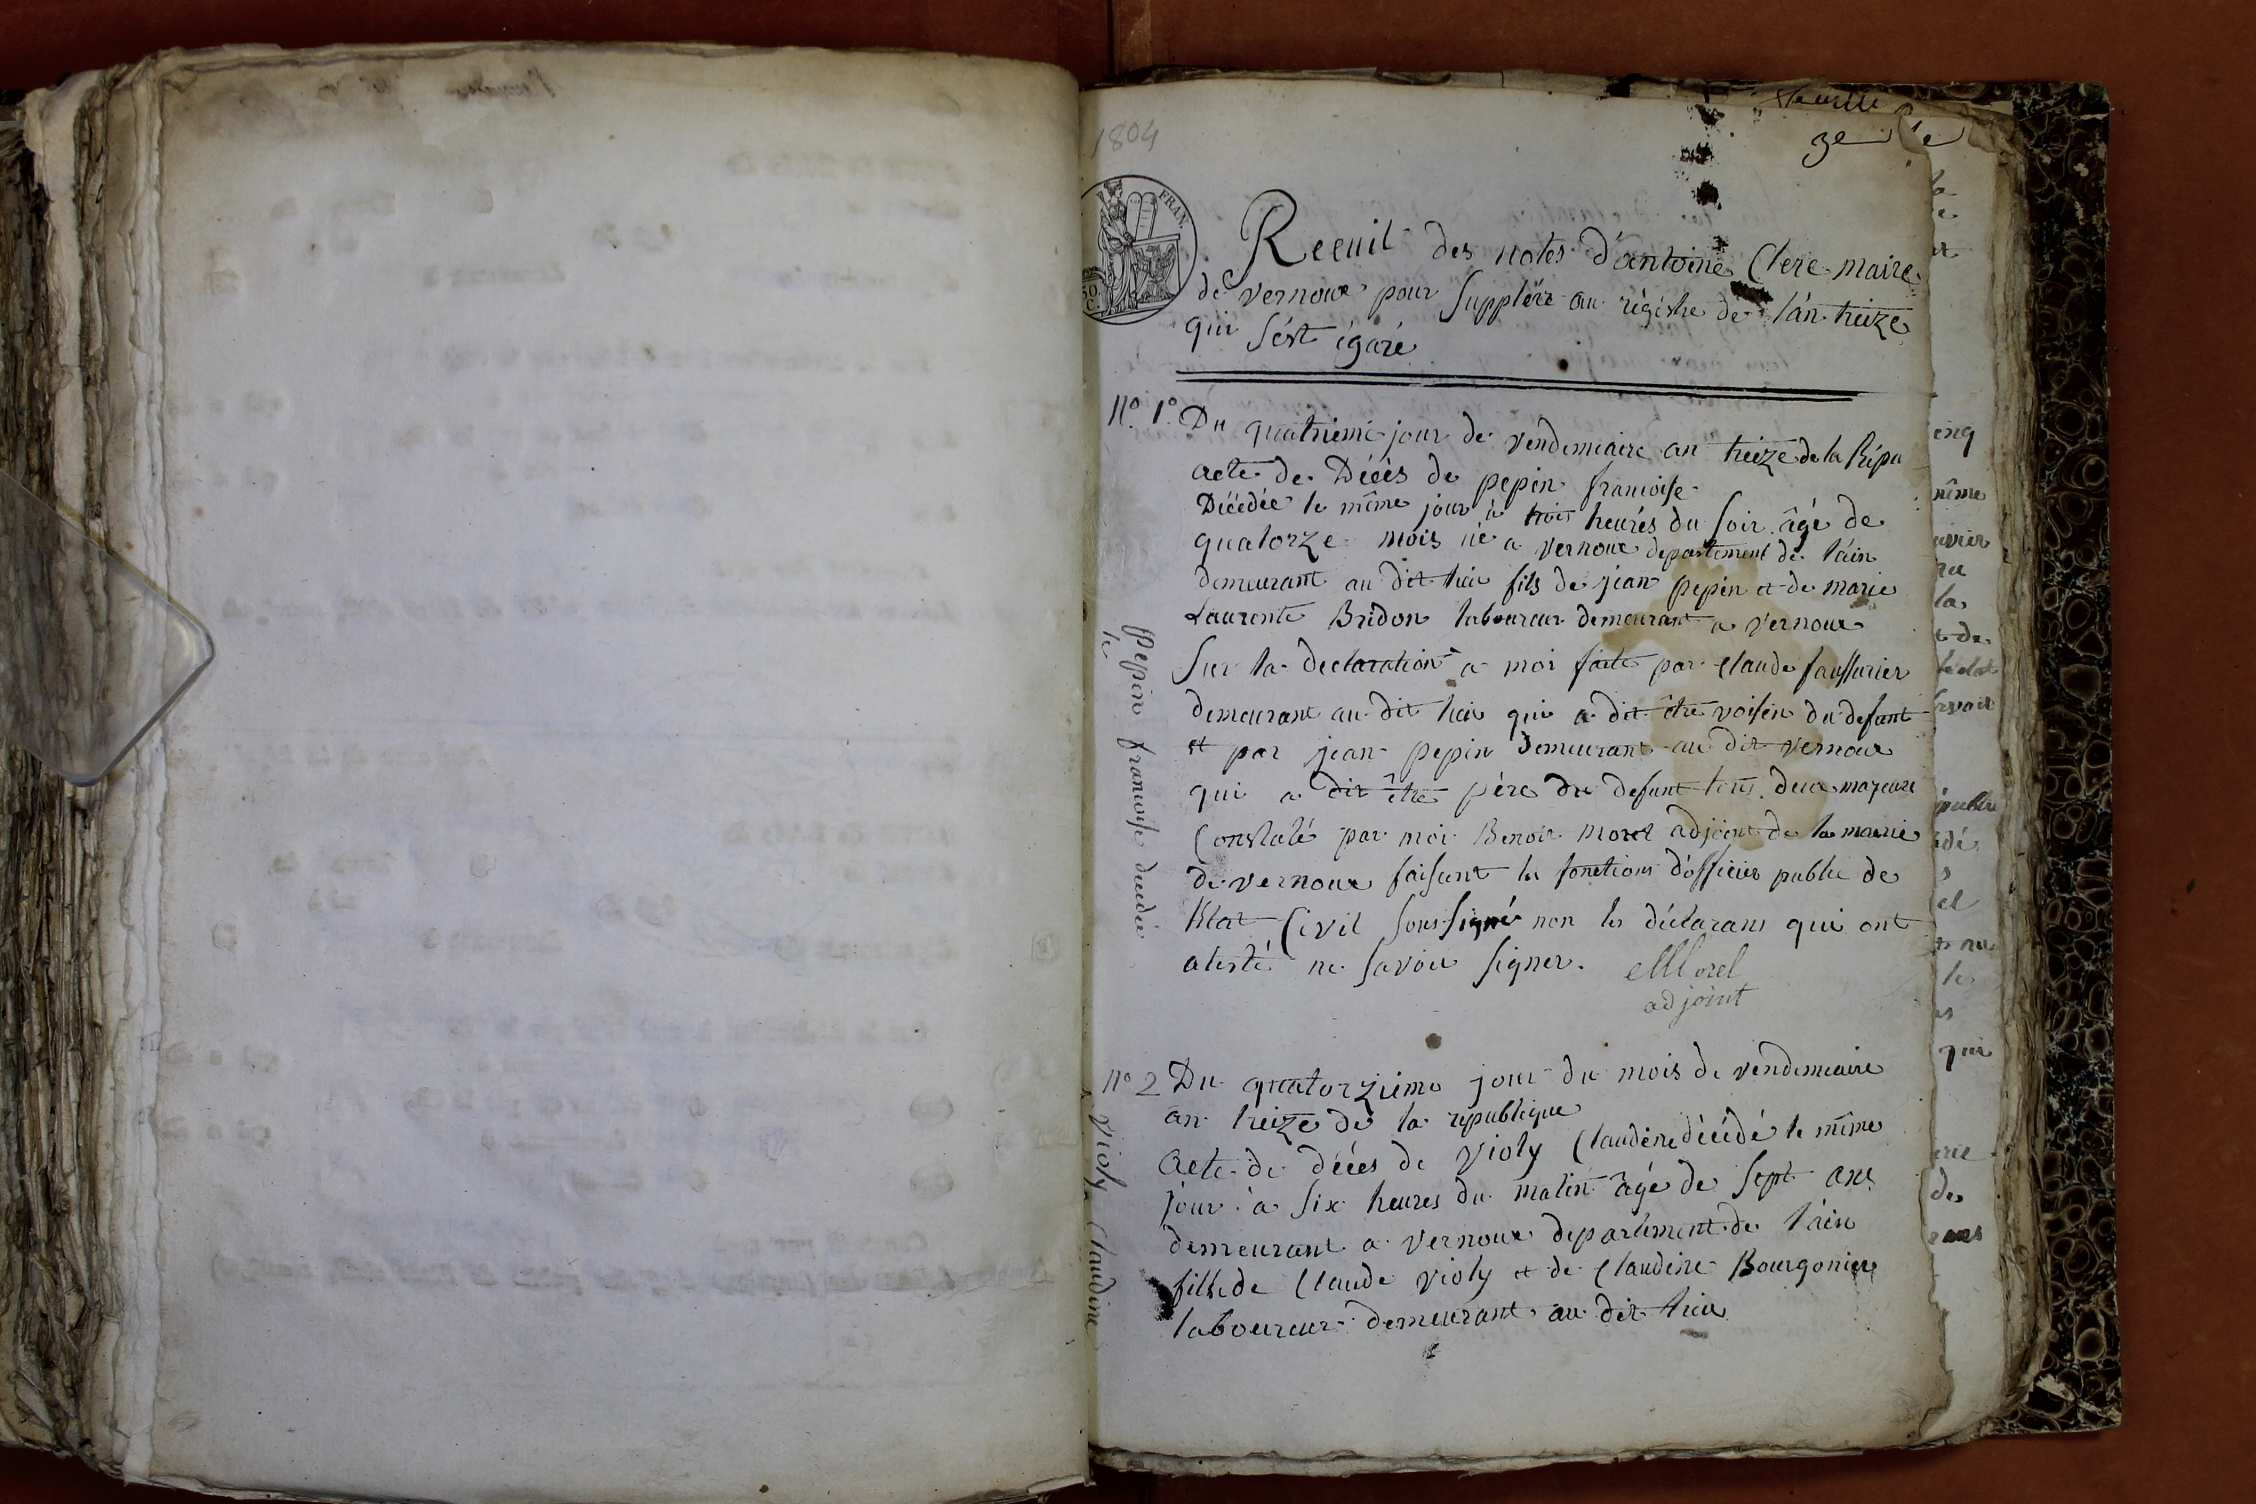 1804
3e
FRAN.
Recuit des notes d'antoine Clere maire
de vernoux pour Supplèer au régistre de l'an treize
qui s'ést égaré
N.o 1.o Du quatrieme jour de vendemiaire an treize de la Répu
acte de Décès de pepin francoise
Décédée le même jour à trois heurés du soir âgé de
quatorze mois né a vernoux departement de l'ain
demeurant au dit lieu fils de jean pepin et de marie
Laurente Bridon laboureur demeurant a vernoux
Sur la declaration a moi faite par claude faussurier
demeurant au dit lieu qui a dit être voisin du defunt
et par jean pepin demeurant au dit vernoux
qui a dit être père du defunt tous deux majeure
Constaté par moi Benoit morel adjoint de la mairie
de vernoux faisant les fonctions d'officier public de
l'état Civil sous signé non les déclarans qui ont
atesté ne savoir signer.
Morel
adjoint
Pepin francoise decedée
le
No 2 Du quatorzieme jour du mois de vendemiaire
an treize de la république
acte de décès de violy Claudine décédé le même
jour à six heures du matin âgé de sept ans
demeurant a vernoux departement de l'ain
fille de Claude violy et de Claudine Bourgonier
laboureur demeurant au dit lieu
violy Claudine
même
la
qui